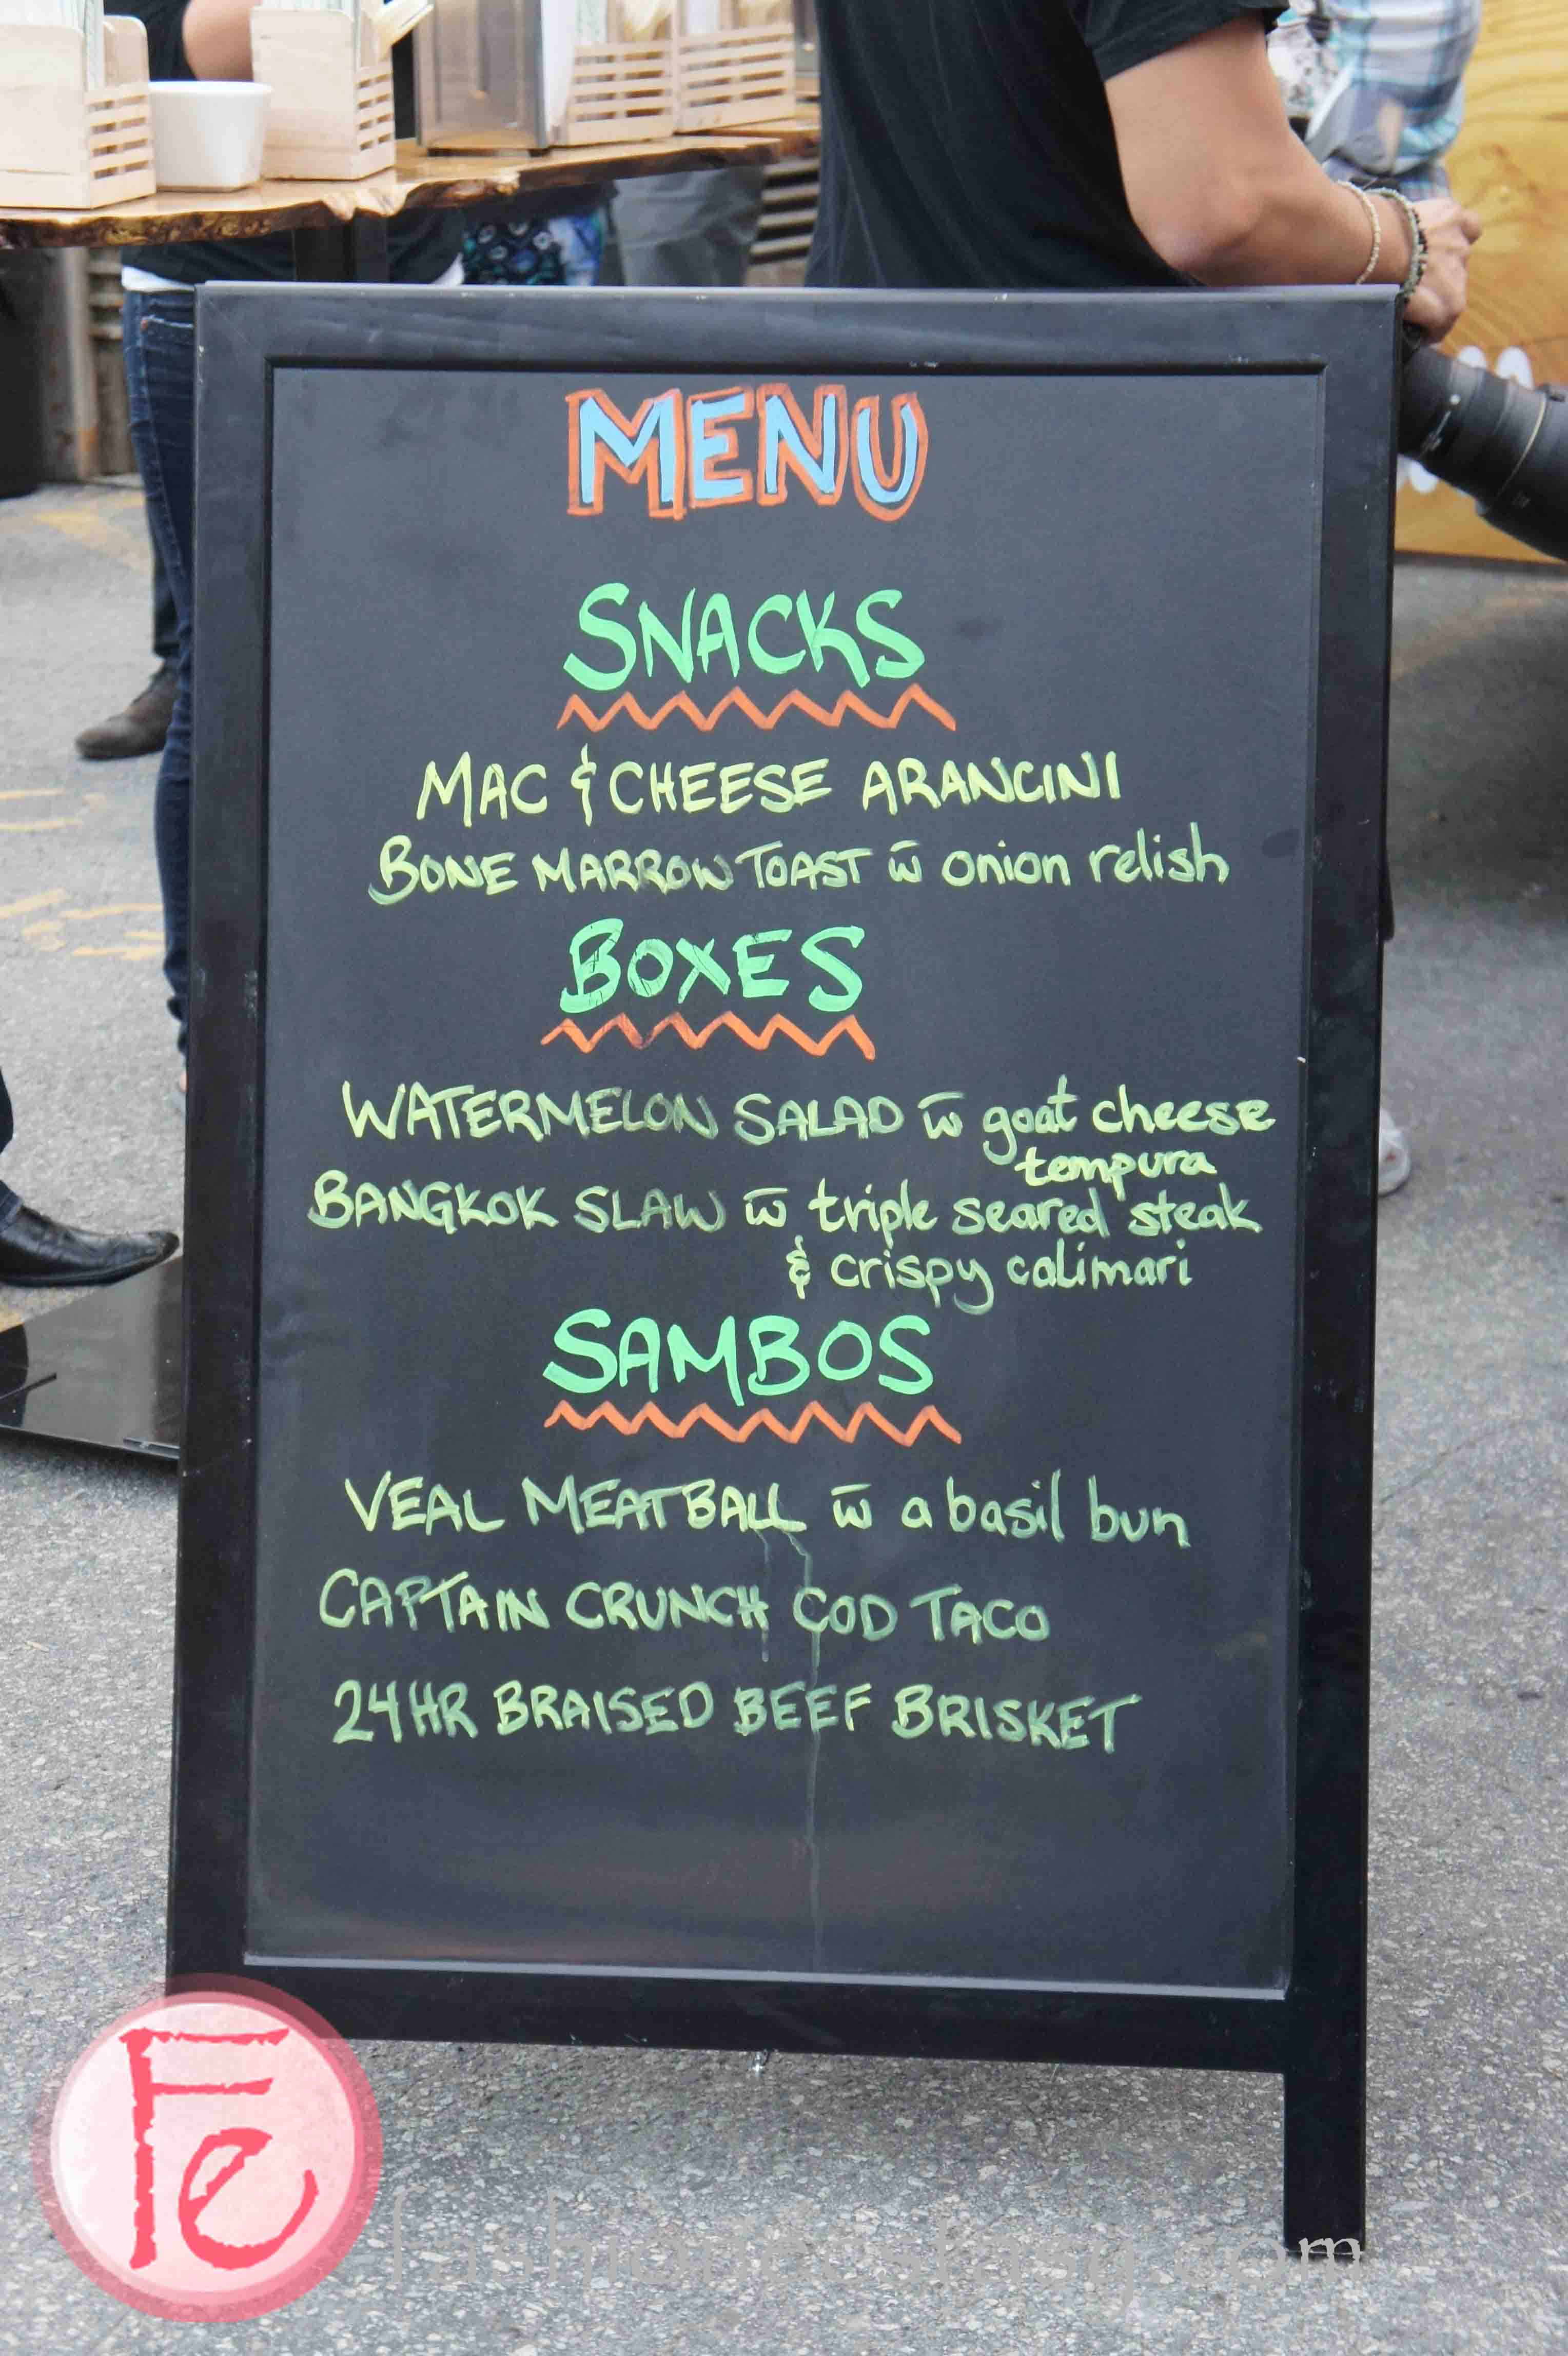 MENU
SNACKS
MAC & CHEESE ARANCINI
BONE MARROW TOAST w̅ onion relish
BOXES
WATERMELON SALAD w̅ goat cheese
tempura
BANGKOK SLAW w̅ triple seared steak
& crispy calimari
SAMBOS
VEAL MEATBALL w̅ a basil bun
CAPTAIN CRUNCH COD TACO
24HR BRAISED BEEF BRISKET
Fe
fashionecstasy.com